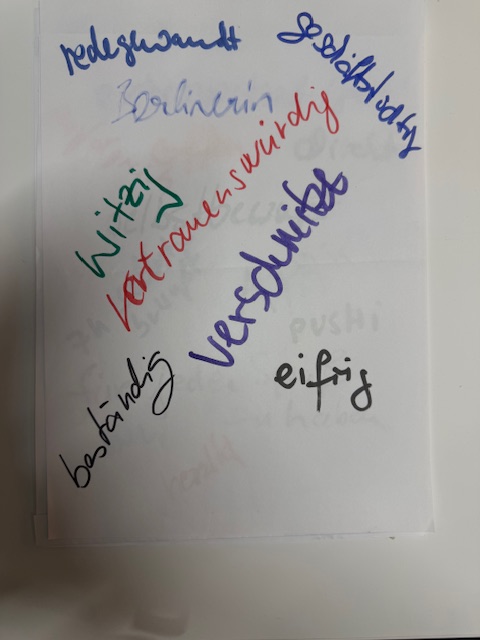 redegewandt
geschäftstüchtig
Berlinerin
witzig
vertrauenswürdig
verschmitzt
beständig
eifrig